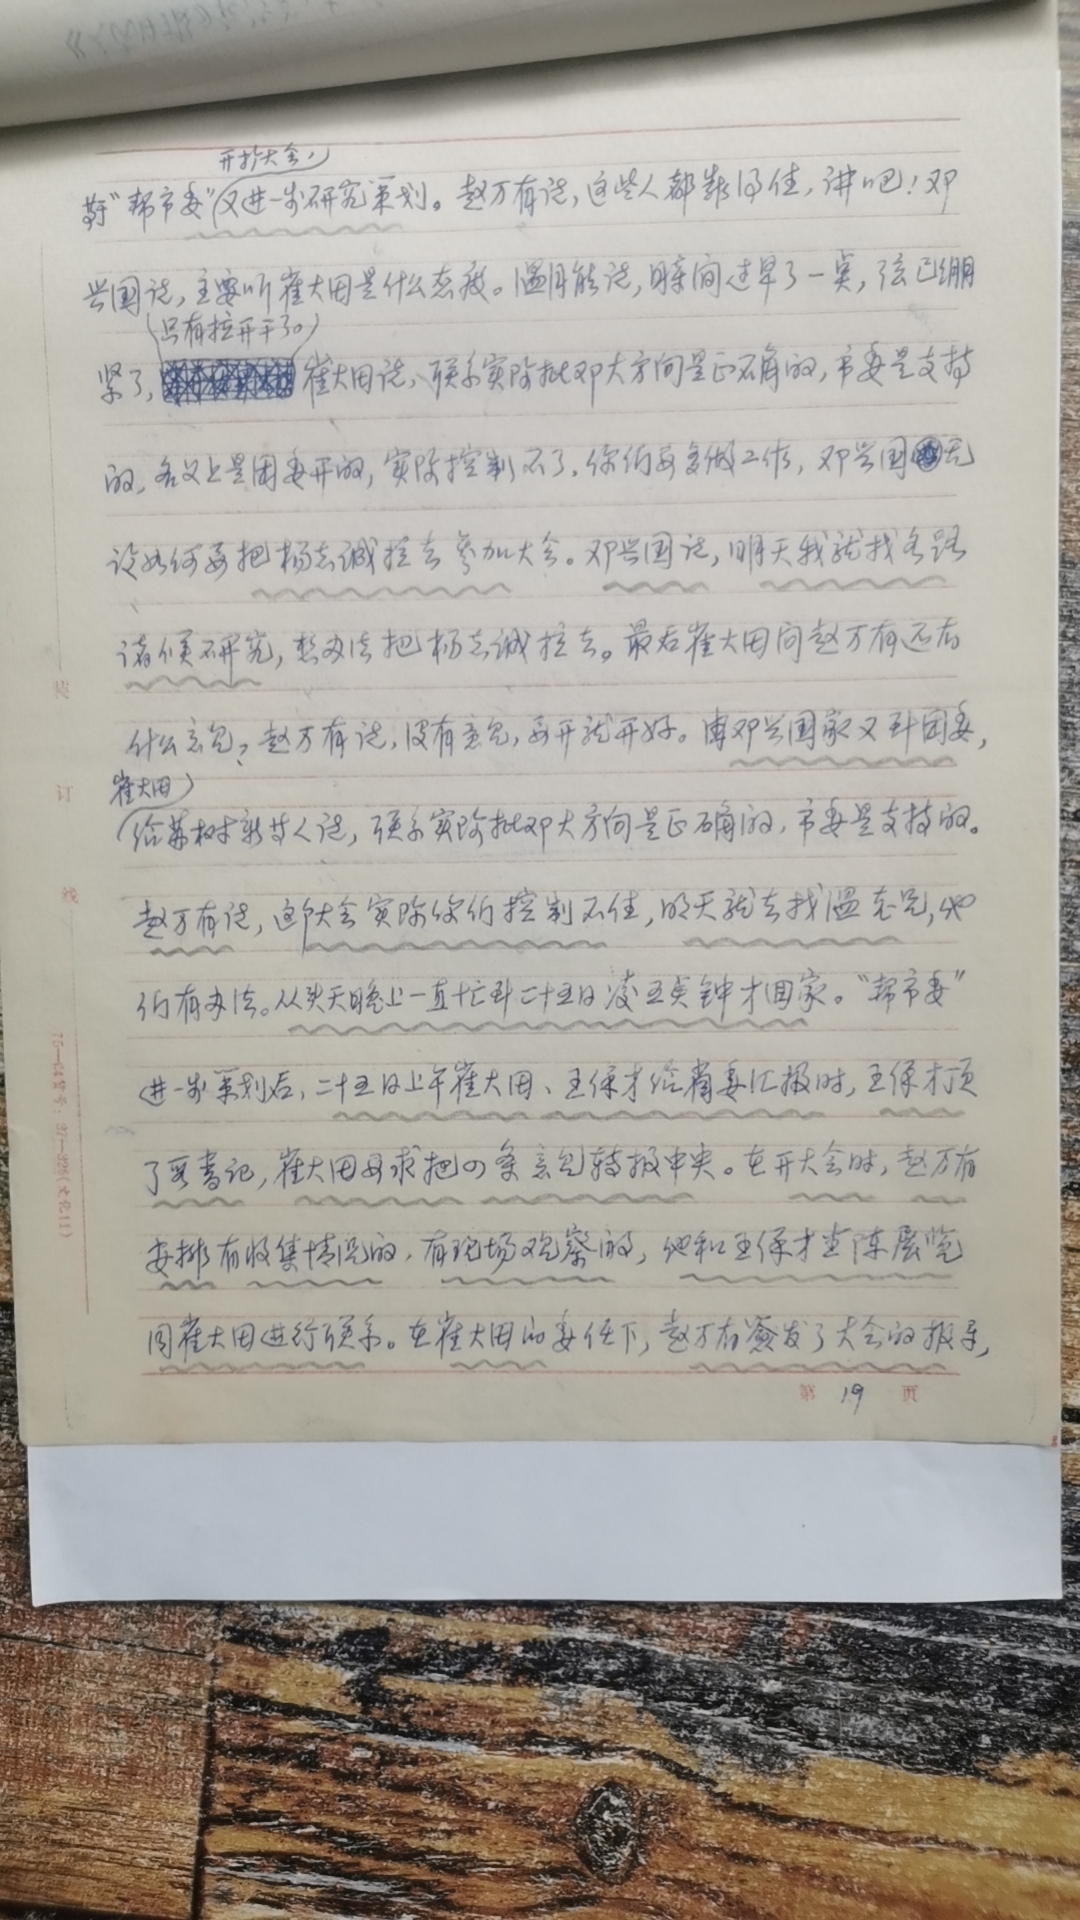 开扩大会，
对"帮市委"又进一步研究策划。赵万有说，这些人都靠得住，讲吧！邓
兴国说，主要听崔大田是什么态度。温月能说，时间过早了一实，弦已绷
只有拉开干了。
紧了，崔大田说、联系实际批邓大方向是正确的，市委是支持
的，名义上是团委开的，实际控制不了，你们要多做工作，邓兴国
说如何要把杨志诚拉去参加大会。邓兴国说，明天我就找各路
诸侯研究，想办法把杨志诚拉去。最后崔大田问赵万有还有
什么意见，赵万有说，没有意见，要开就开好。由邓兴国家又到团委，
崔大田
给苏树新等人说，联系实际批邓大方向是正确的，市委是支持的。
赵万有说，这个大会实际你们控制不住，明天就去找温志兄，他
们有办法。从头天晚上一直忙到二十五日凌五点钟才回家。"帮市委"
进一步策划后，二十五日上午崔大田、王保才给省委汇报时，王保才顶
了 书记，崔大田要求把四条意见转报中央。在开大会时，赵万有
安排有收集情况的，有现场观察的，他和王保才坐阵展览
同崔大田进行联系。在崔大田的委任下，赵万有签发了大会的报导，
装
订
线
第 19 页